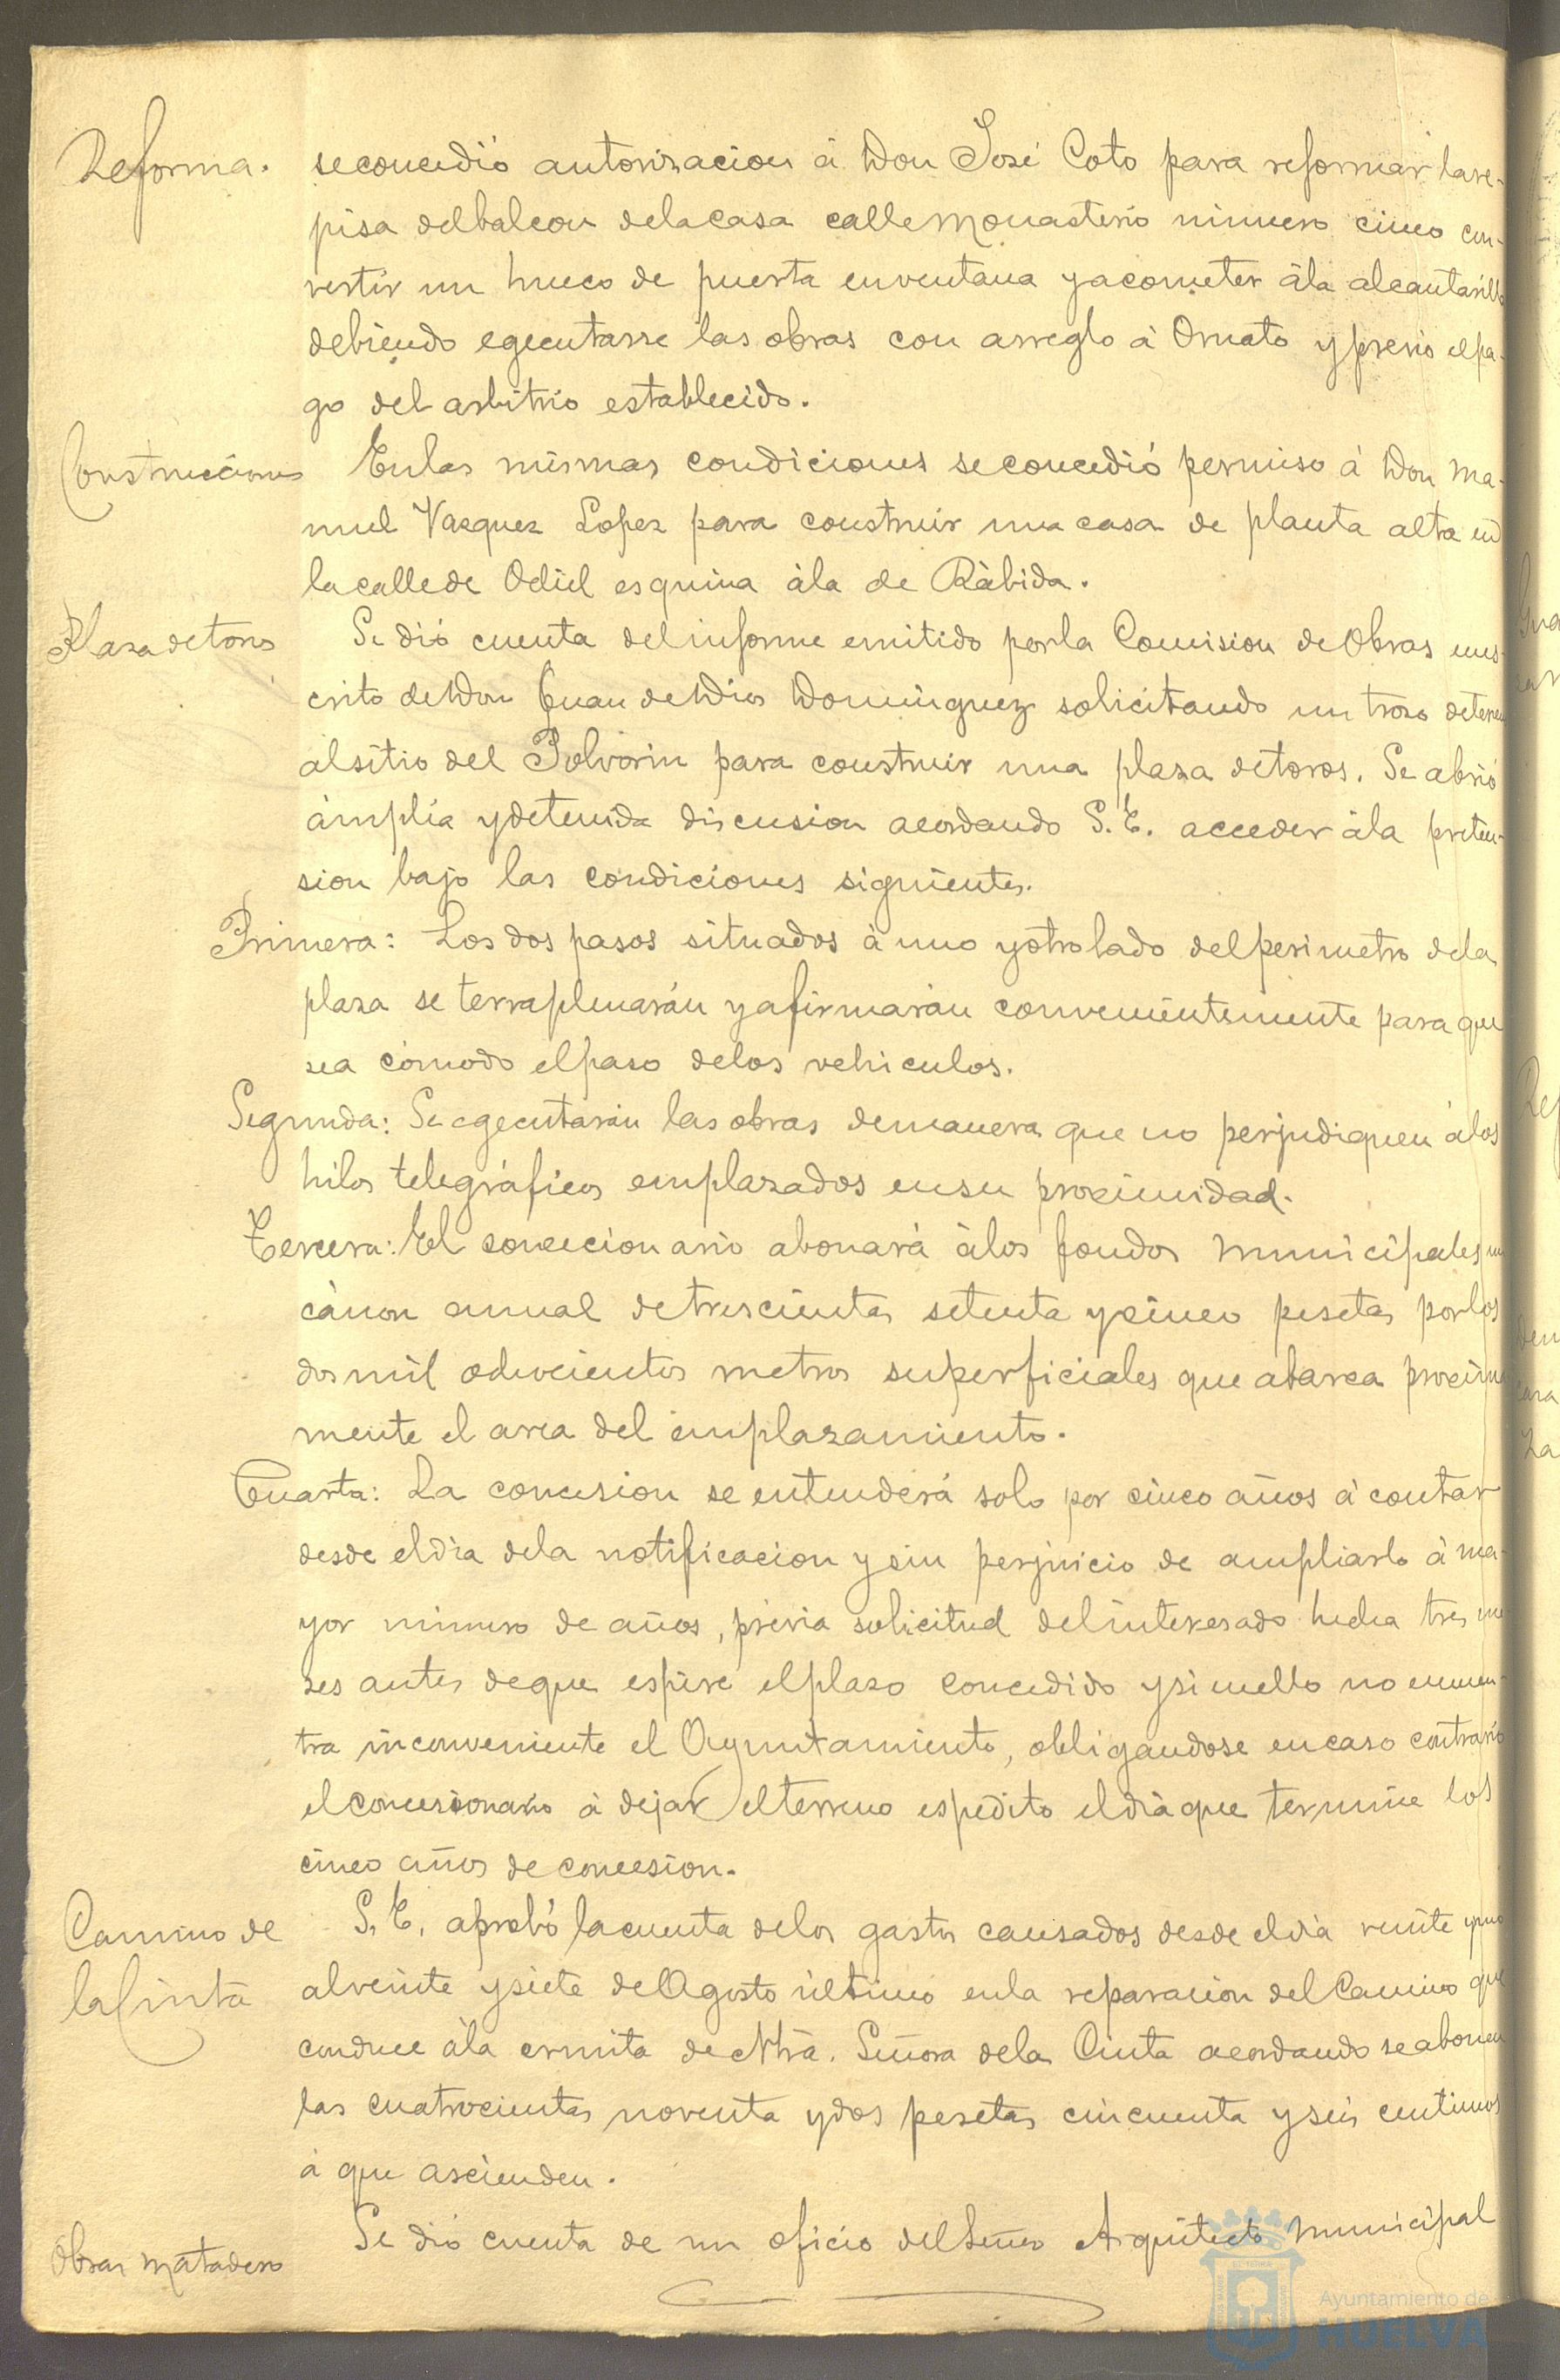 Reforma.
se concedió autorizacion á Don José Coto para reformar la re-
pisa del balcon de la casa calle Monasterio número cinco con-
vertir un hueco de puerta en ventana y acometer á la alcantarilla
debiendo egecutarse las obras con arreglo á Ornato y prévio el pa-
go del arbitrio establecido.
Construcciones
En las mismas condiciones se concedió permiso á Don Ma-
nuel Vazquez Lopez para construir una casa de planta alta en
la calle de Odiel esquina á la de Rábida.
Plaza de toros
Se dió cuenta del informe emitido por la Comision de Obras en es-
crito de Don Juan de Dios Dominguez solicitando un trozo de terreno
al sitio del Polvorin para construir una plaza de toros. Se abrió
ámplia y detenida discusion acordando S. E. acceder á la preten-
sion bajo las condiciones siguientes.
Primera: Los dos pasos situados á uno y otro lado del perimetro de la
plaza se terraplenarán y afirmarán convenientemente para que
sea cómodo el paso de los vehiculos.
Segunda: Se egecutarán las obras de manera que no perjudiquen á los
hilos telegráficos emplazados en su proximidad.
Tercera: El concecionario abonará á los fondos municipales un
cánon anual de trescientas setenta y cinco pesetas por los
dos mil ochocientos metros superficiales que abarca proxima
mente el area del emplazamiento.
Cuarta: La concesion se entenderá solo por cinco años á contar
desde el dia de la notificacion y sin perjuicio de ampliarlo á ma-
yor número de años, prévia solicitud del interesado hecha tres me
ses antes de que espire el plazo concedido y si en ello no encuen-
tra inconveniente el Ayuntamiento, obligandose en caso contrario
el concesionario á dejar el terreno espedito el dia que termine los
cinco años de concesion.
Camino de
la Cinta
S. E. aprobó la cuenta de los gastos causados desde el dia veinte y uno
al veinte y siete de Agosto último en la reparacion del Camino que
conduce á la ermita de Ntra. Señora de la Cinta acordando se abonen
las cuatrocientas noventa y dos pesetas cincuenta y seis centimos
á que ascienden.
Obras matadero
Se dió cuenta de un oficio del Señor Arquitecto municipal
Ayuntamiento de
HUELVA